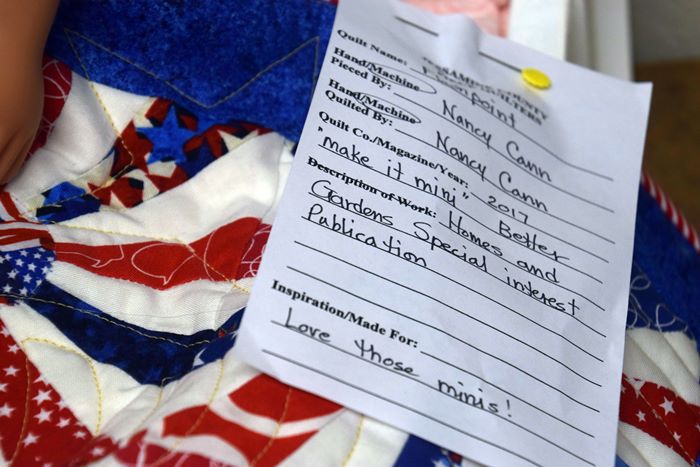 COUNTY
Quilt Name:
Hand/Machine
Pieced By: Nancy Cann
Hand/Machine
Quilted By: Nancy Cann
Quilt Co./Magazine/Year: 2017
"make it mini" Better
Description of Work: Homes and
Gardens Special interest
Publication
Inspiration/Made For:
Love those minis!